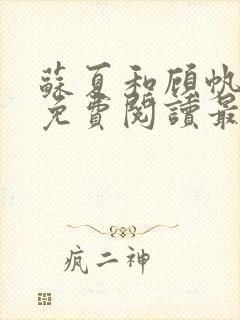 蘇夏和顧帆
免費閱讀最
瘋二神